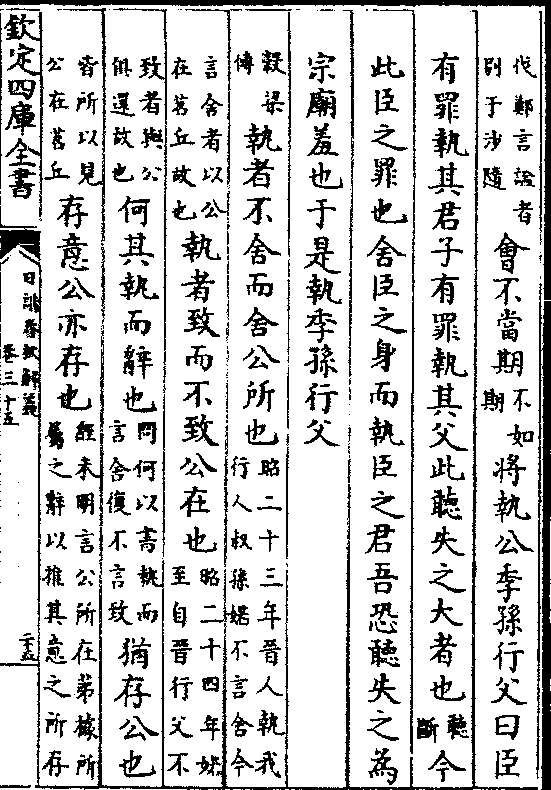 伐鄭言詣者別于沙隨會不當期不如期將執公季孫行父曰臣
有罪執其君子有罪執其父此聽失之大者也聽斷今
此臣之罪也舍臣之身而執臣之君吾恐聽失之為
宗廟羞也于是執季孫行父
穀梁傳執者不舍而舍公所也昭二十三年晉人執我行人叔孫婼不言舍今
言舍者以公在苕丘故也執者致而不致公在也昭二十四年婼至自晉行父不
致者與公俱還故也何其執而辭也問何以書執而言舍復不言致猶存公也
皆所以見公在苕丘存意公亦存也經未明言公所在第據所屬之辭以推其意之所存
欽定四庫全書
日講春秋解義
卷三十五
二十五